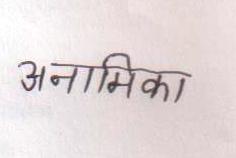 अनामिका